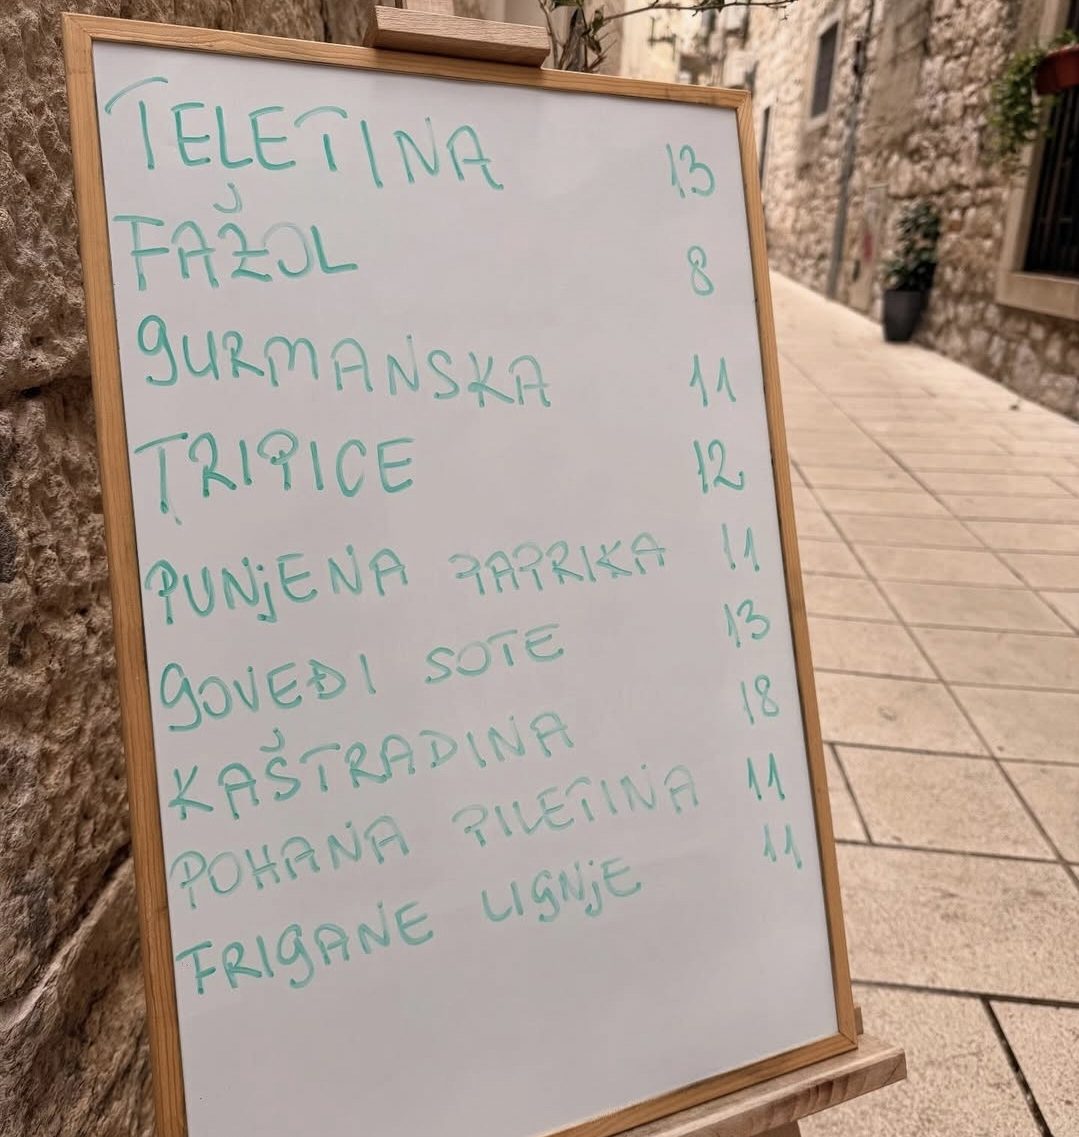 TELETINA 13
FAŽOL 8
GURMANSKA 11
TRIPICE 12
PUNJENA PAPRIKA 11
GOVEĐI SOTE 13
KAŠTRADINA 18
POHANA PILETINA 11
FRIGANE LIGNJE 11